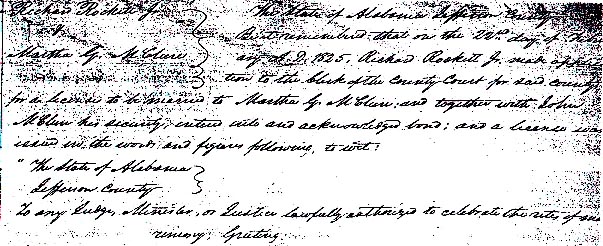 Richard Rockett Jr The State of Alabama Jefferson County
& Be it remembered that on the 22nd day of
Martha G. McClure A.D. 1825, Richard Rockett Jr. made
tion to the Clerk of the County Court for said county
for a license to be married to Martha G. McClure, and together with John
McClure his security, entered into and acknowledged bond; and a license was
issued in the words and figures following, to wit:
" The State of Alabama
Jefferson County
To any Judge, Minister, or Justice lawfully authorized to celebrate the rites of mat
rimony: Greeting